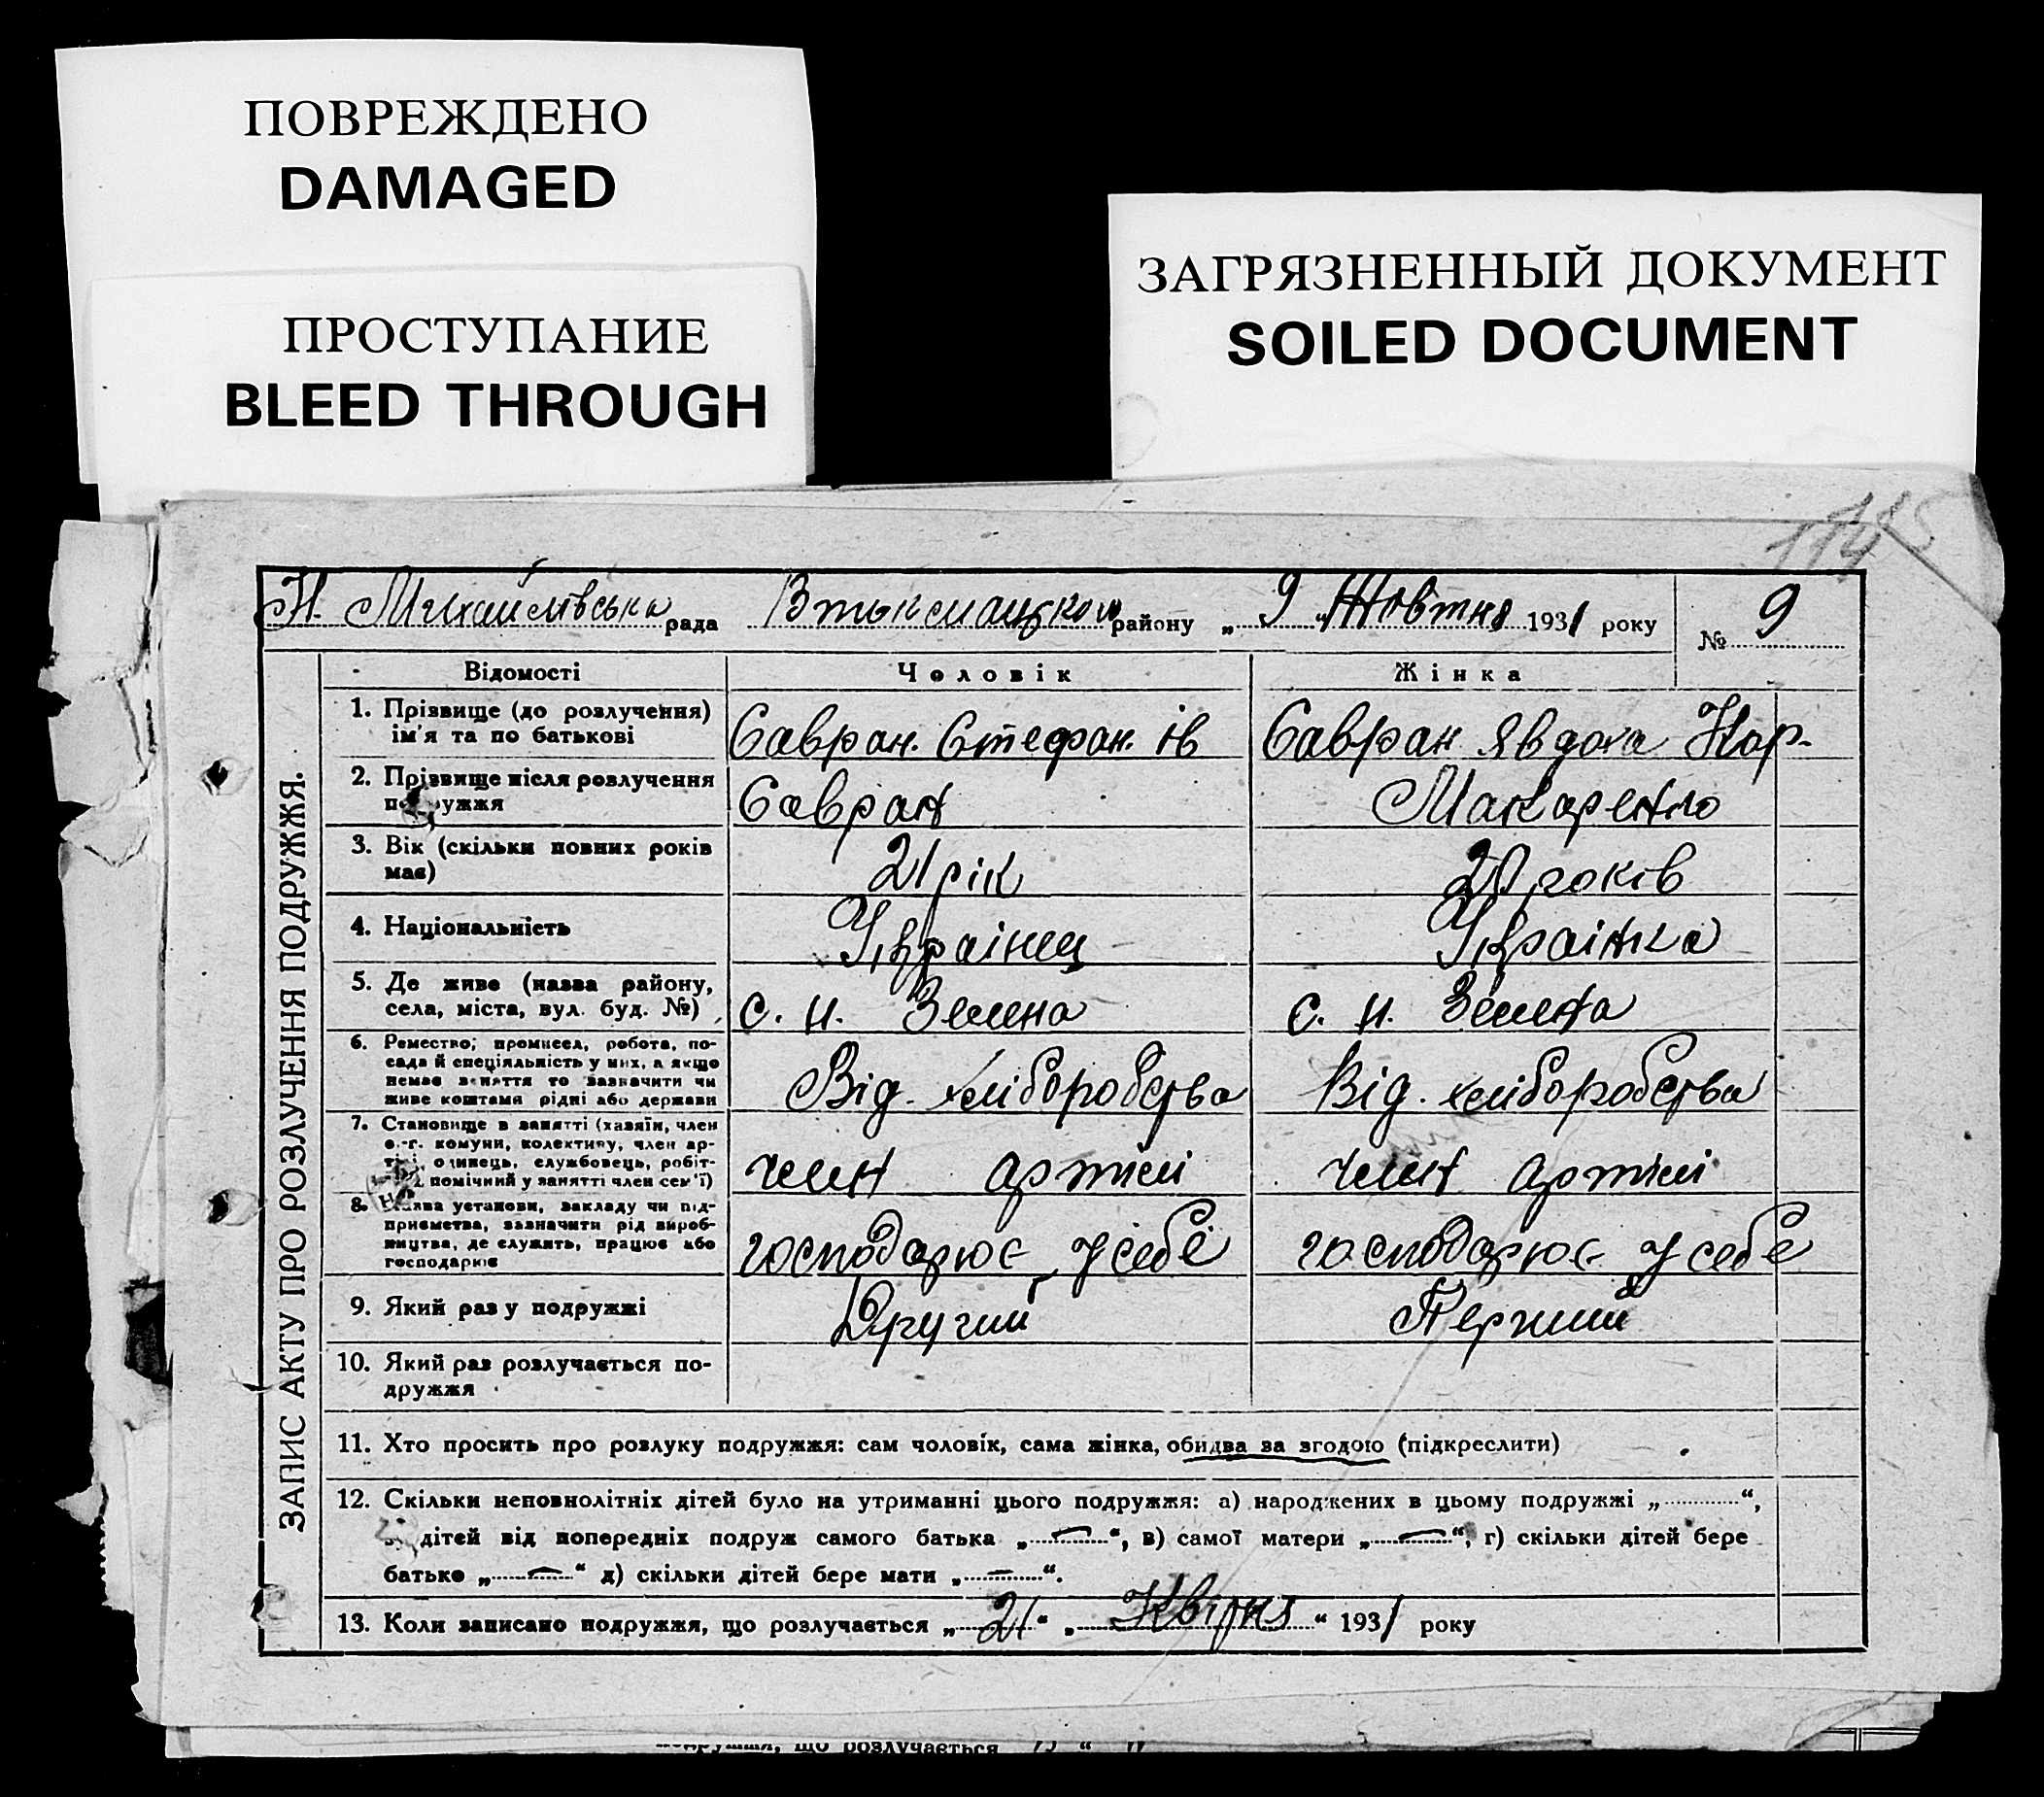 ПОВРЕЖДЕНО
DAMAGED
ПРОСТУПАНИЕ
BLEED THROUGH
ЗАГРЯЗНЕННЫЙ ДОКУМЕНТ
SOILED DOCUMENT
Н. Михайлівська рада району „ 9 “ Жовтня 1931 року № 9
ЗАПИС АКТУ ПРО РОЗЛУЧЕННЯ ПОДРУЖЖЯ.
Відомості Чоловік Жінка
1. Прізвище (до розлучення) ім'я та по батькові
Савран. Стефан. ів
Савран Явдоха
2. Прізвище після розлучення подружжя
Савран
Макаренко
3. Вік (скільки повних років має)
21 рік
20 років
4. Національність
Українец
Українка
5. Де живе (назва району,
села, міста, вул. буд. №)
с. н. Зелена
с. н. Зелена
6. Ремество, промисел, робота, по-
сада й спеціяльність у них, а якщо
немає заняття то зазначити чи
живе коштами рідні або держави
Від. хліборобства
Від. хліборобства
7. Становище в занятті (хазяїн, член
с.-г. комуни, колективу, член ар-
одинець, службовець, робіт-
помічний у занятті член сем'ї)
член артілі
член артілі
8. Назва установи, закладу чи під-
приємства, зазначити рід вироб-
ництва, де служить, працює або
господарює
господарює у себе
господарює у себе
9. Який раз у подружжі
Другий
Перший
10. Який раз розлучається по-
дружжя
11. Хто просить про розлуку подружжя: сам чоловік, сама жінка, обидва за згодою (підкреслити)
12. Скільки неповнолітніх дітей було на утриманні цього подружжя: а) народжених в цьому подружжі „ “,
дітей від попередніх подруж самого батька „—“, в) самої матери „—“, г) скільки дітей бере
батько „—“ д) скільки дітей бере мати „—“.
13. Коли записано подружжя, що розлучається „ 21 “ „ Квітня “ 1931 року
подружжя, що розлучається